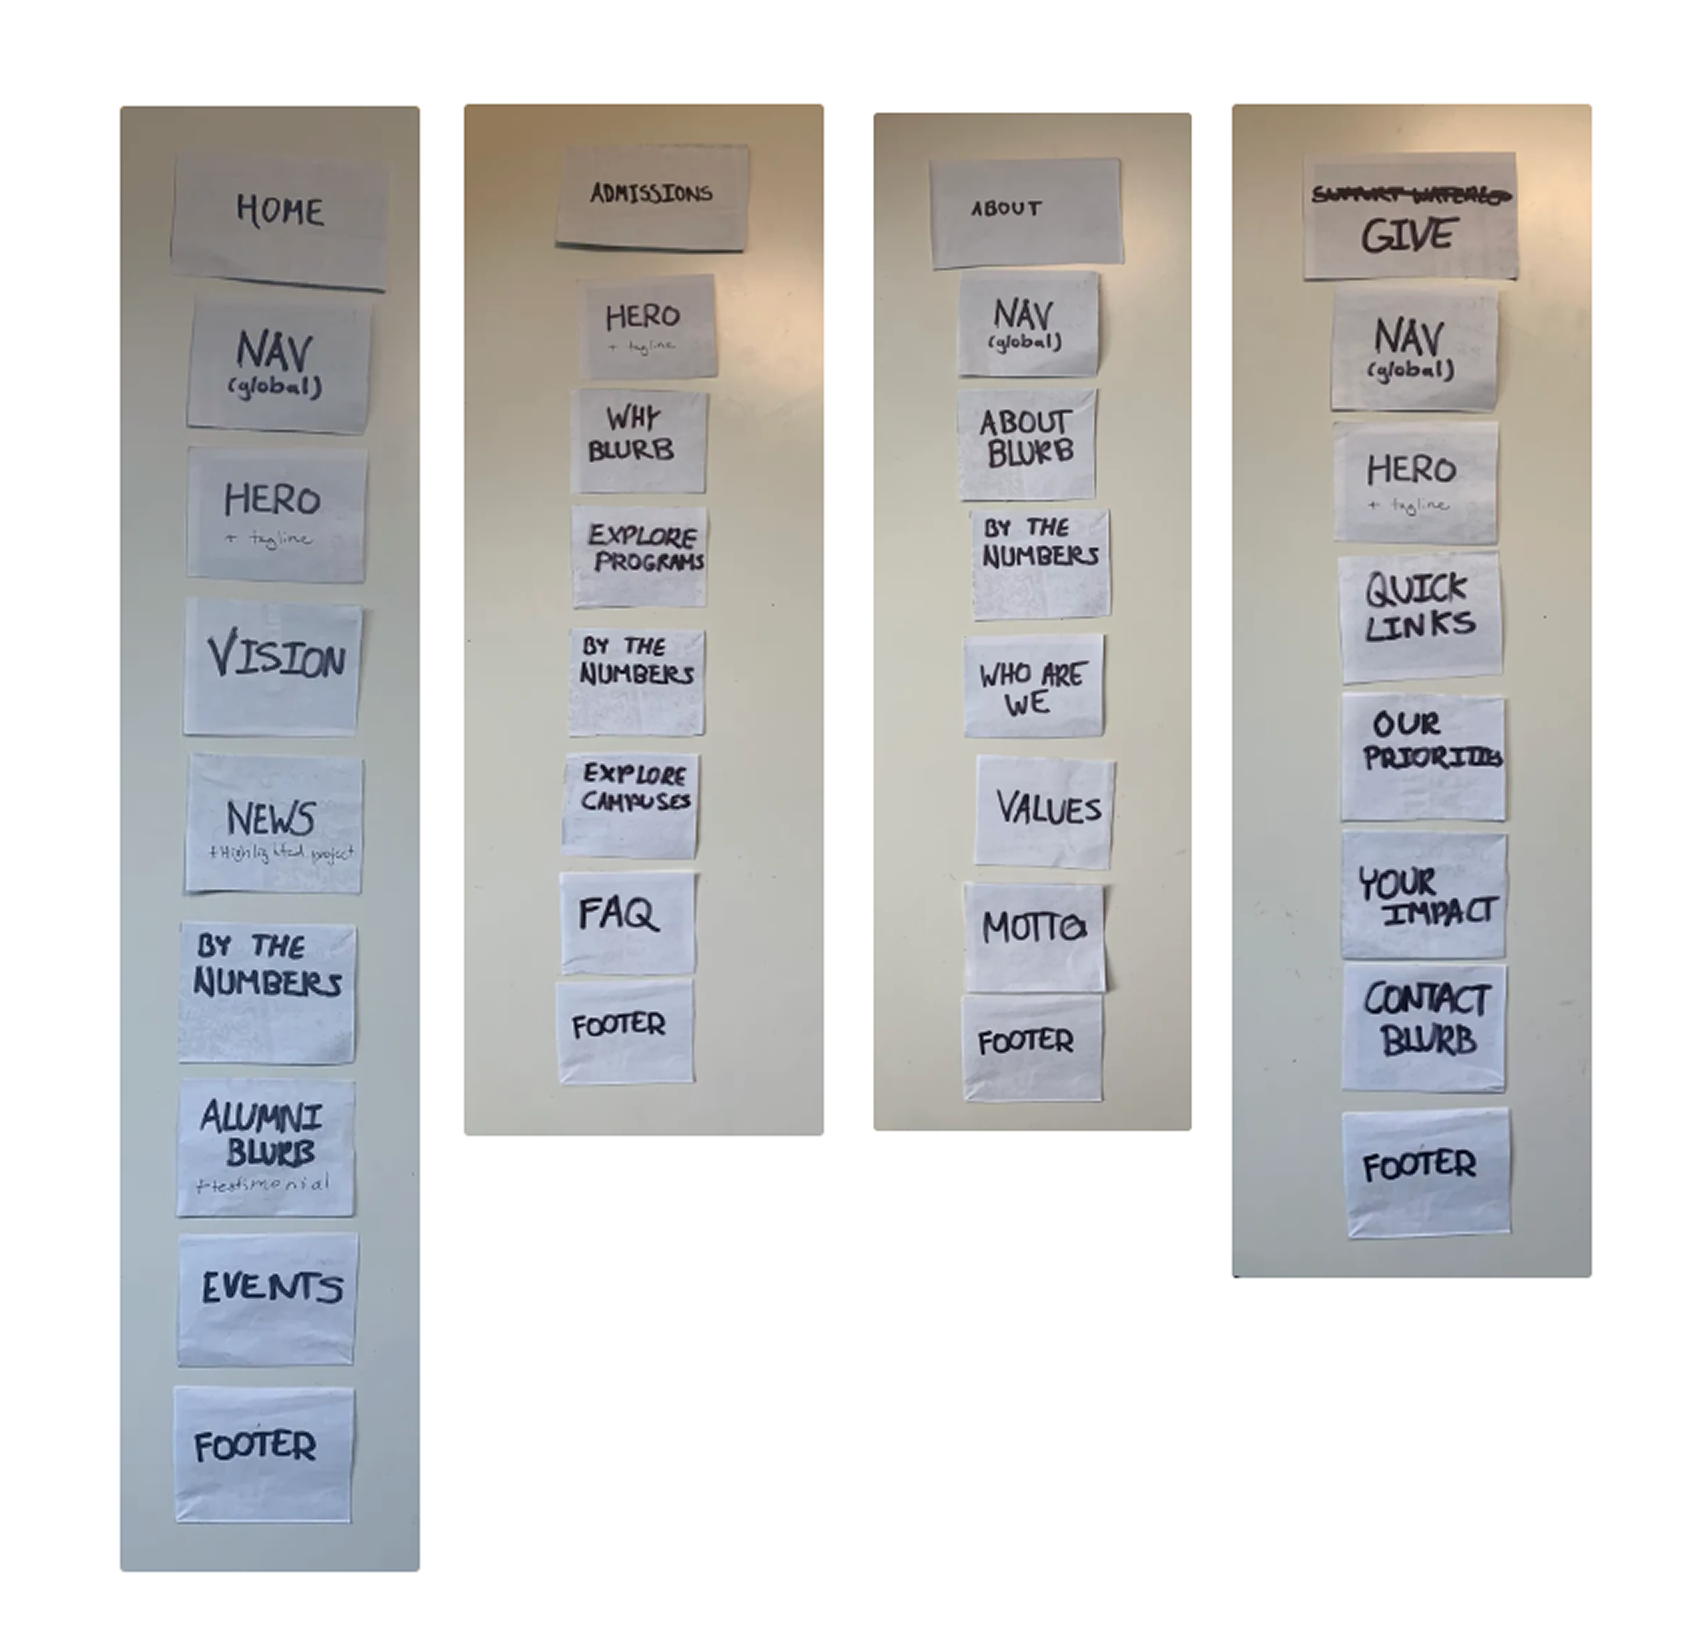 HOME
NAV
(global)
HERO
+ tagline
VISION
NEWS
+Highlighted project
BY THE
NUMBERS
ALUMNI
BLURB
+testimonial
EVENTS
FOOTER
ADMISSIONS
HERO
+ tagline
WHY
BLURB
EXPLORE
PROGRAMS
BY THE
NUMBERS
EXPLORE
CAMPUSES
FAQ
FOOTER
ABOUT
NAV
(global)
ABOUT
BLURB
BY THE
NUMBERS
WHO ARE
WE
VALUES
MOTTO
FOOTER
SUPPORT WATERLOO
GIVE
NAV
(global)
HERO
+ tagline
QUICK
LINKS
OUR
PRIORITIES
YOUR
IMPACT
CONTACT
BLURB
FOOTER